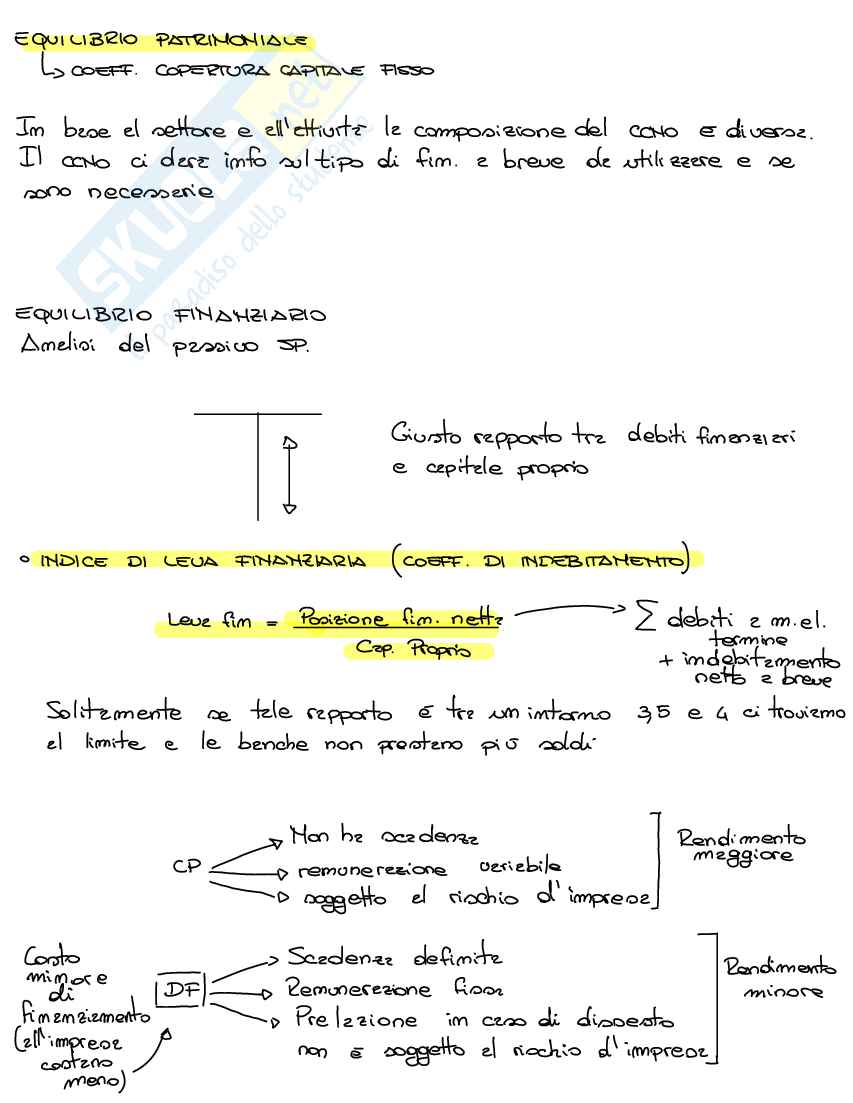 EQUILIBRIO PATRIMONIALE
↳ COEFF. COPERTURA CAPITALE FISSO
In base al settore e all'attività la composizione del CCNO è diversa.
Il CCNO ci darà info sul tipo di fin. a breve da utilizzare e se
sono necessarie
SKUOLA.net
il paradiso dello studente
EQUILIBRIO FINANZIARIO
Analisi del passivo SP.
Giusto rapporto tra debiti finanziari
e capitale proprio
• INDICE DI LEVA FINANZIARIA (COEFF. DI INDEBITAMENTO)
Leva fin = Posizione fin. netta
Cap. Proprio
→ ∑ debiti a m.e l.
termine
+ indebitamento
netto a breve
Solitamente se tale rapporto è tra un intorno 3,5 e 4 ci troviamo
al limite e le banche non prestano più soldi
CP
Non ha scadenza
remunerazione variabile
soggetto al rischio d'impresa
Rendimento
maggiore
Costo
minore
di
finanziamento
(all'impresa
costano
meno)
DF
Scadenza definita
Remunerazione fissa
Prelazione in caso di dissesto
non è soggetto al rischio d'impresa
Rendimento
minore